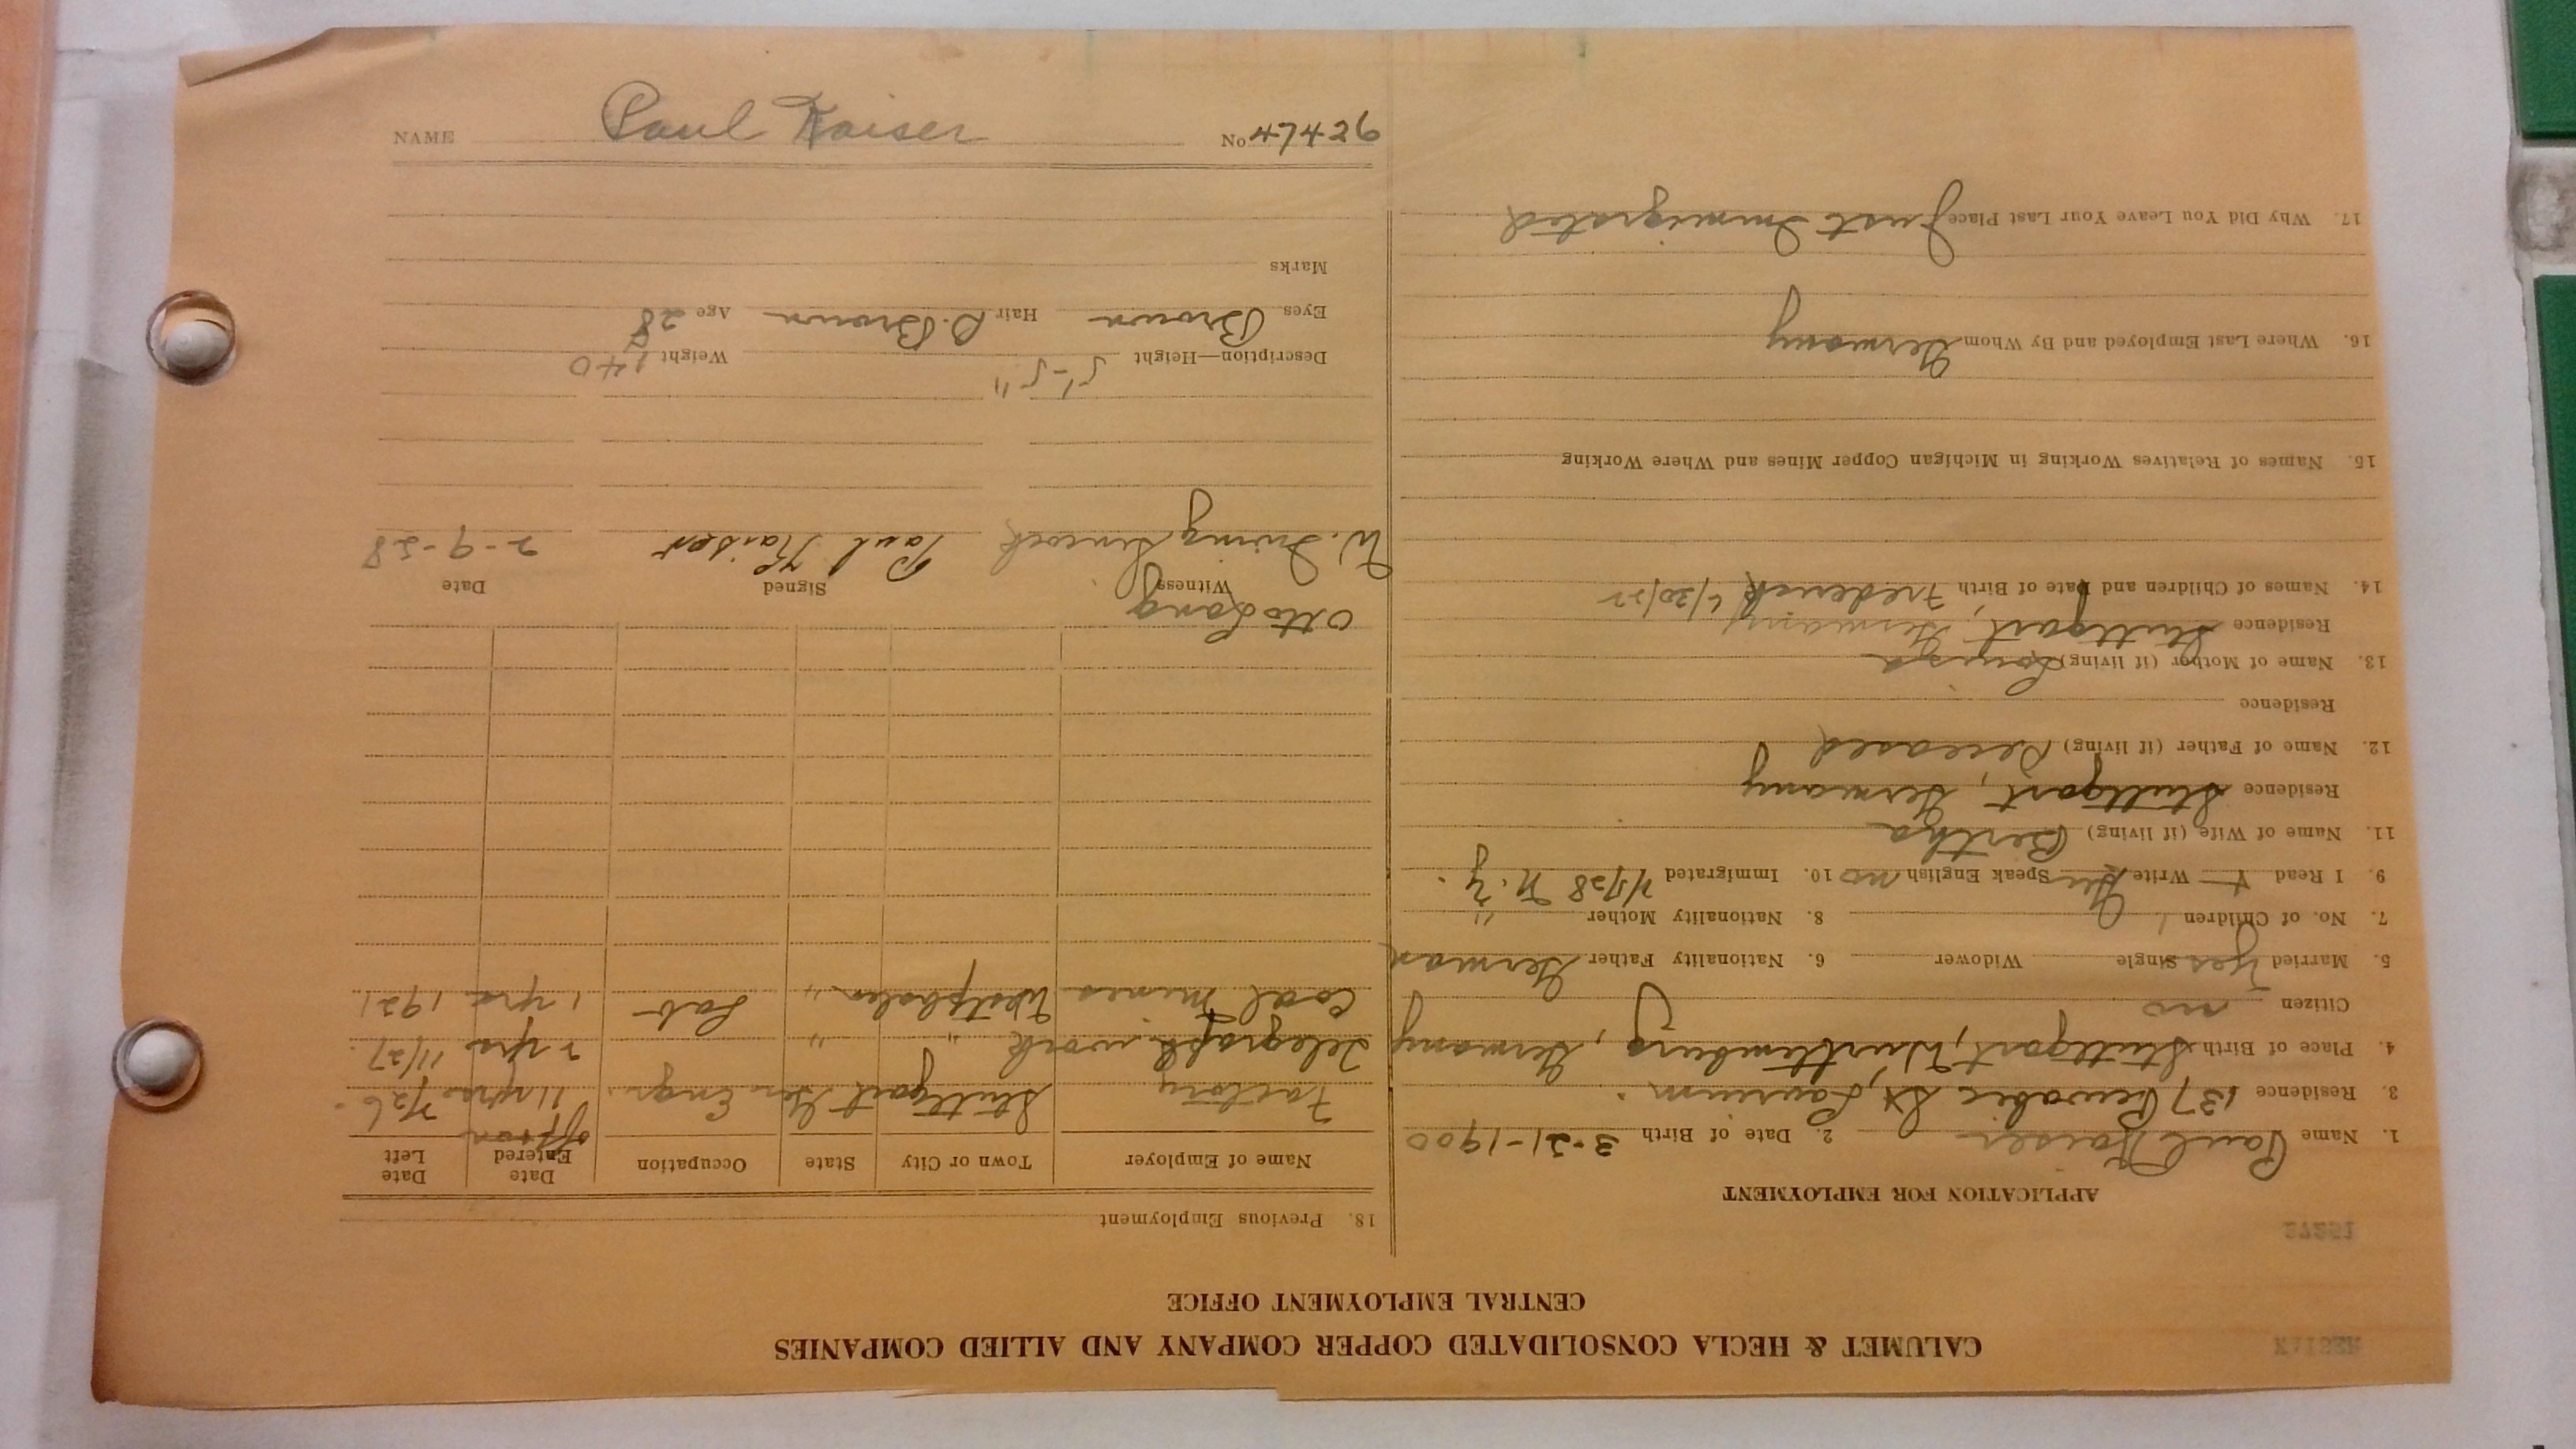 KAISER
CALUMET & HECLA CONSOLIDATED COPPER COMPANY AND ALLIED COMPANIES
CENTRAL EMPLOYMENT OFFICE
APPLICATION FOR EMPLOYMENT
1. Name Paul Kaiser 2. Date of Birth 3-21-1900
3. Residence 137 Pewabic St, Laurium.
4. Place of Birth Stuttgart, Wurttemburg, Germany
Citizen no
5. Married Yes Single Widower 6. Nationality Father German
7. No. of Children 1 8. Nationality Mother "
9. I Read + Write Ger Speak English no 10. Immigrated N.Y.
11. Name of Wife (if living) Bertha
Residence Stuttgart, Germany
12. Name of Father (if living) Deceased
Residence
13. Name of Mother (if living) Louisa
Residence Stuttgart, Germany
14. Names of Children and Date of Birth Frederick
15. Names of Relatives Working in Michigan Copper Mines and Where Working
16. Where Last Employed and By Whom Germany
17. Why Did You Leave Your Last Place Just Immigrated
18. Previous Employment
Name of Employer Town or City State Occupation Date Entered Date Left
off + on
Factory Stuttgart Ger Engr. 11 yrs 7/26.
Telegraph work " " 2 yrs 11/27.
Coal mines Westphalen " Lab 1 yrs 1921
Otto Lang
Witness Signed Date
W. Irving Sincock Paul Kaiser 2-9-28
Description—Height 5'-5" Weight 140
Eyes Brown Hair D. Brown Age 28
Marks
NAME Paul Kaiser No 47426